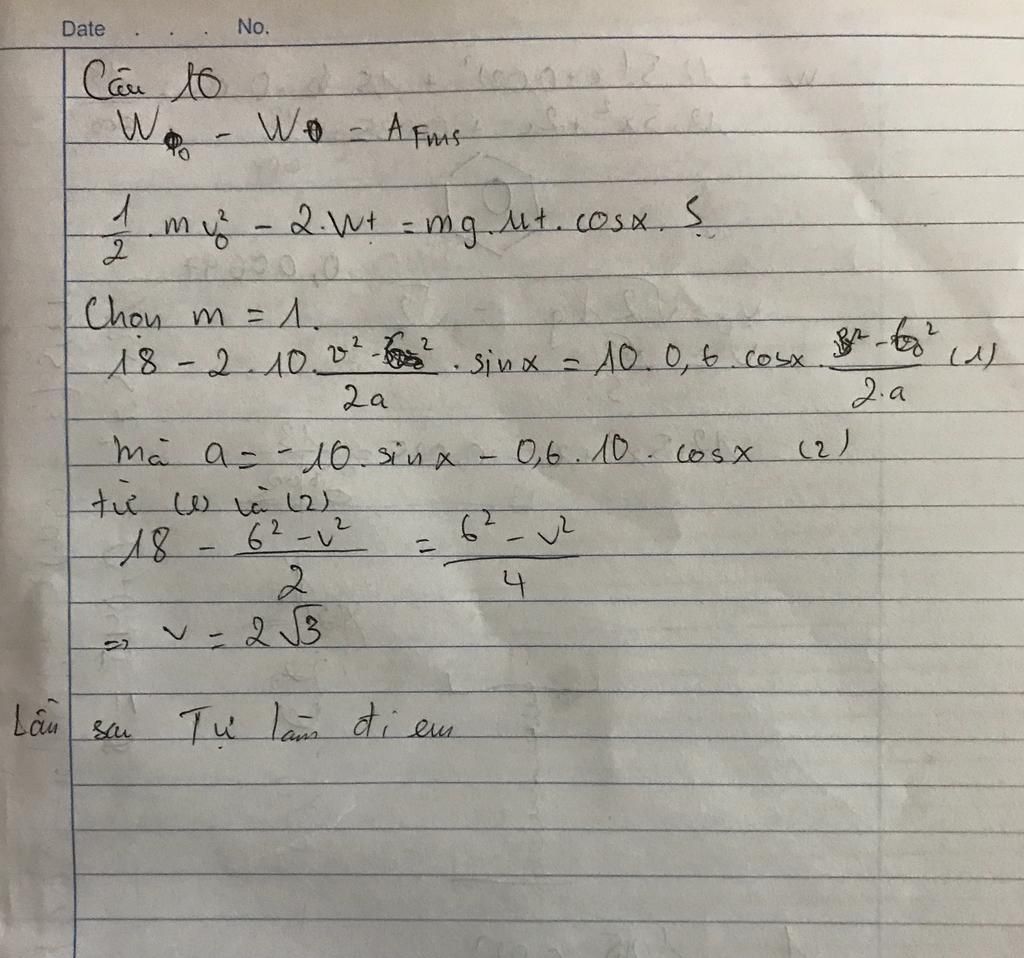 Date . . . No.
Câu 10
W₀ - W = A Fms
1/2 . m v₀² - 2.Wt = mg.μt. cosx. S
Chọn m = 1.
18 - 2.10. (v² - 6²)/2a . sinx = 10.0,6.cosx. (v² - 6²)/2.a (1)
mà a = -10.sinx - 0,6.10. cosx (2)
từ (1) và (2)
18 - (6² - v²)/2 = (6² - v²)/4
=> v = 2√3
Lần sau Tự làm đi em